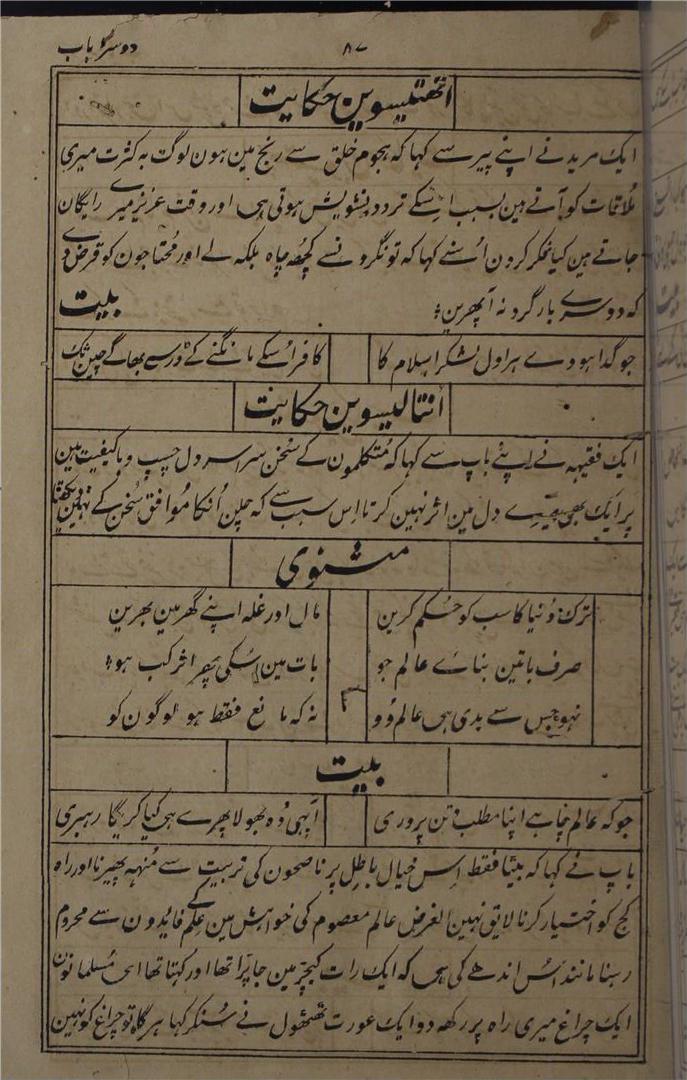 دوسرا باب
۸۷
اٹھتیسوین حکایت
ایک مرید نے اپنے پیر سے کہا کہ ہجوم خلق سے رنج مین ہون لوگ بہ کثرت میری
ملاقات کو آتے ہین بسبب اسکے تردد و تشویش ہوتی ہی اور وقت عزیز میرے رایگان
جاتے ہین کیا فکر کرون اُسنے کہا کہ تونگرونسے کچھ چاہ بلکہ لے اور محتاجون کو قرض دے
کہ دوسرے بار گرد نہ آ پھرین؛ بیت
جو گدا ہووے ہراول لشکر اسلام کا کافر اُسکے مانگنے کے ڈر سے بھاگے چین تک
اُنتالیسوین حکایت
ایک فقیہہ نے اپنے باپ سے کہا کہ متکلمون کے سُخن سراسر دل چسپ و با کیفیت ہین
پر ایک بھی میرے دل مین اثر نہین کرتا اِس سبب سے کہ چلن اُنکا موافق سُخن کے نہین دیکھتا
مثنوی
ترک دُنیا کا سب کو حُکم کرین مال اور غلہ اپنے گھر مین بھرین
صرف باتین بنائے عالم جو بات مین اُسکی پھر اثر کب ہو؛
نہو جس سے بدی ہی عالم وو نہ کہ مانع فقط ہو لوگون کو
بیت
جو کہ عالم چاہے اپنا مطلب و تن پروری آپہی وہ بھولا پھرے ہی کیا کریگا رہبری
باپ نے کہا کہ بیٹا فقط اِس خیال باطل پر ناصحون کی تربیت سے مُنہہ پھیرنا اور راہ
کج کو اختیار کرنا لایق نہین الغرض عالم معصوم کی خواہش مین علم کے فایدون سے محروم
رہنا مانند اُس اندھے کی ہی کہ ایک رات کیچڑ مین جا پڑا تھا اور کہتا تھا ای مُسلمانون
ایک چراغ میری راہ پر رکھہ دو ایک عورت ٹھٹھول نے سُنکر کہا ہرگاہ تو چراغ کو نہین